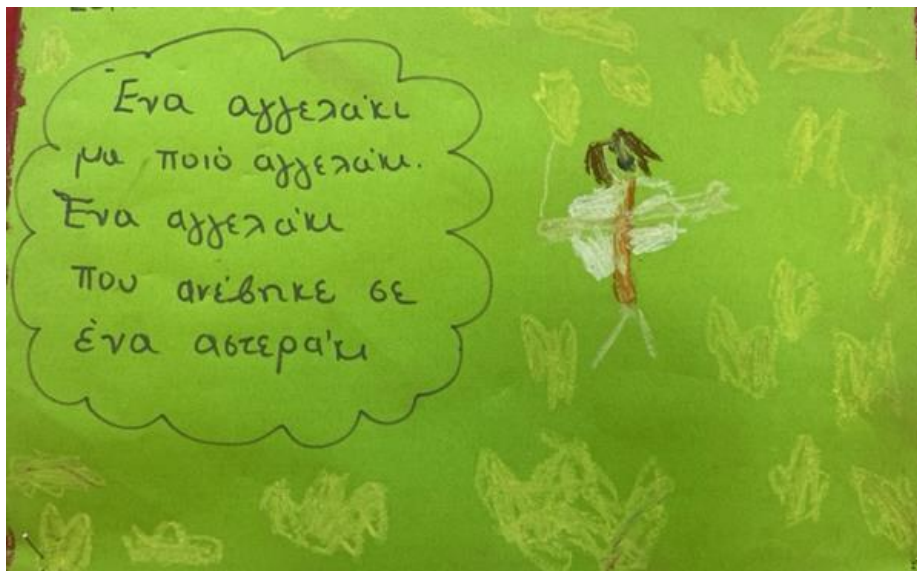 Ένα αγγελάκι
μα ποιό αγγελάκι.
Ένα αγγελάκι
που ανέβηκε σε
ένα αστεράκι